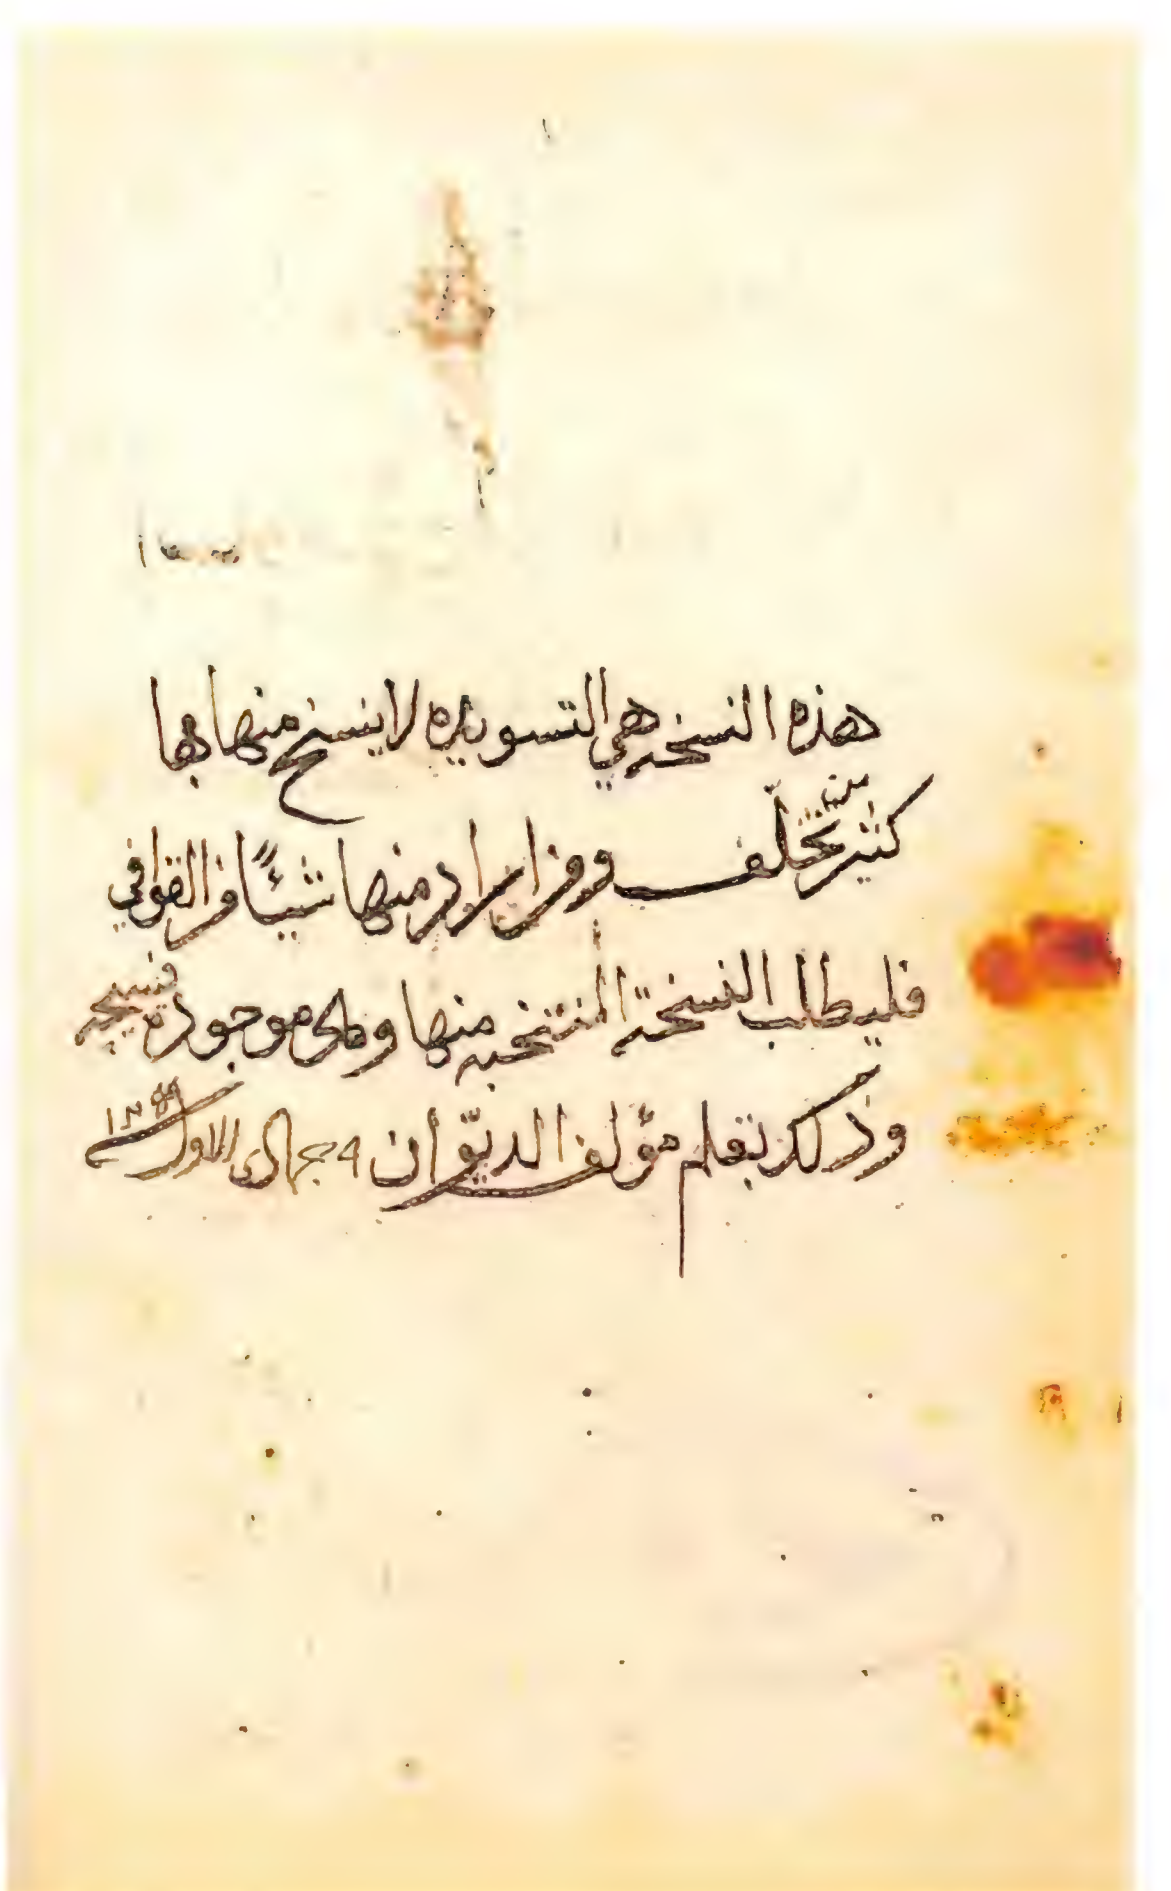 هذه النسخه هي التسويده لا ينسخ منها بها
كثير تخلف ومن اراد منها شيئًا من القوافي
فليطلب النسخة المنتخبه منها وهي موجوده
وذلك بقلم مؤلف الديوان ٩ جماد الاول